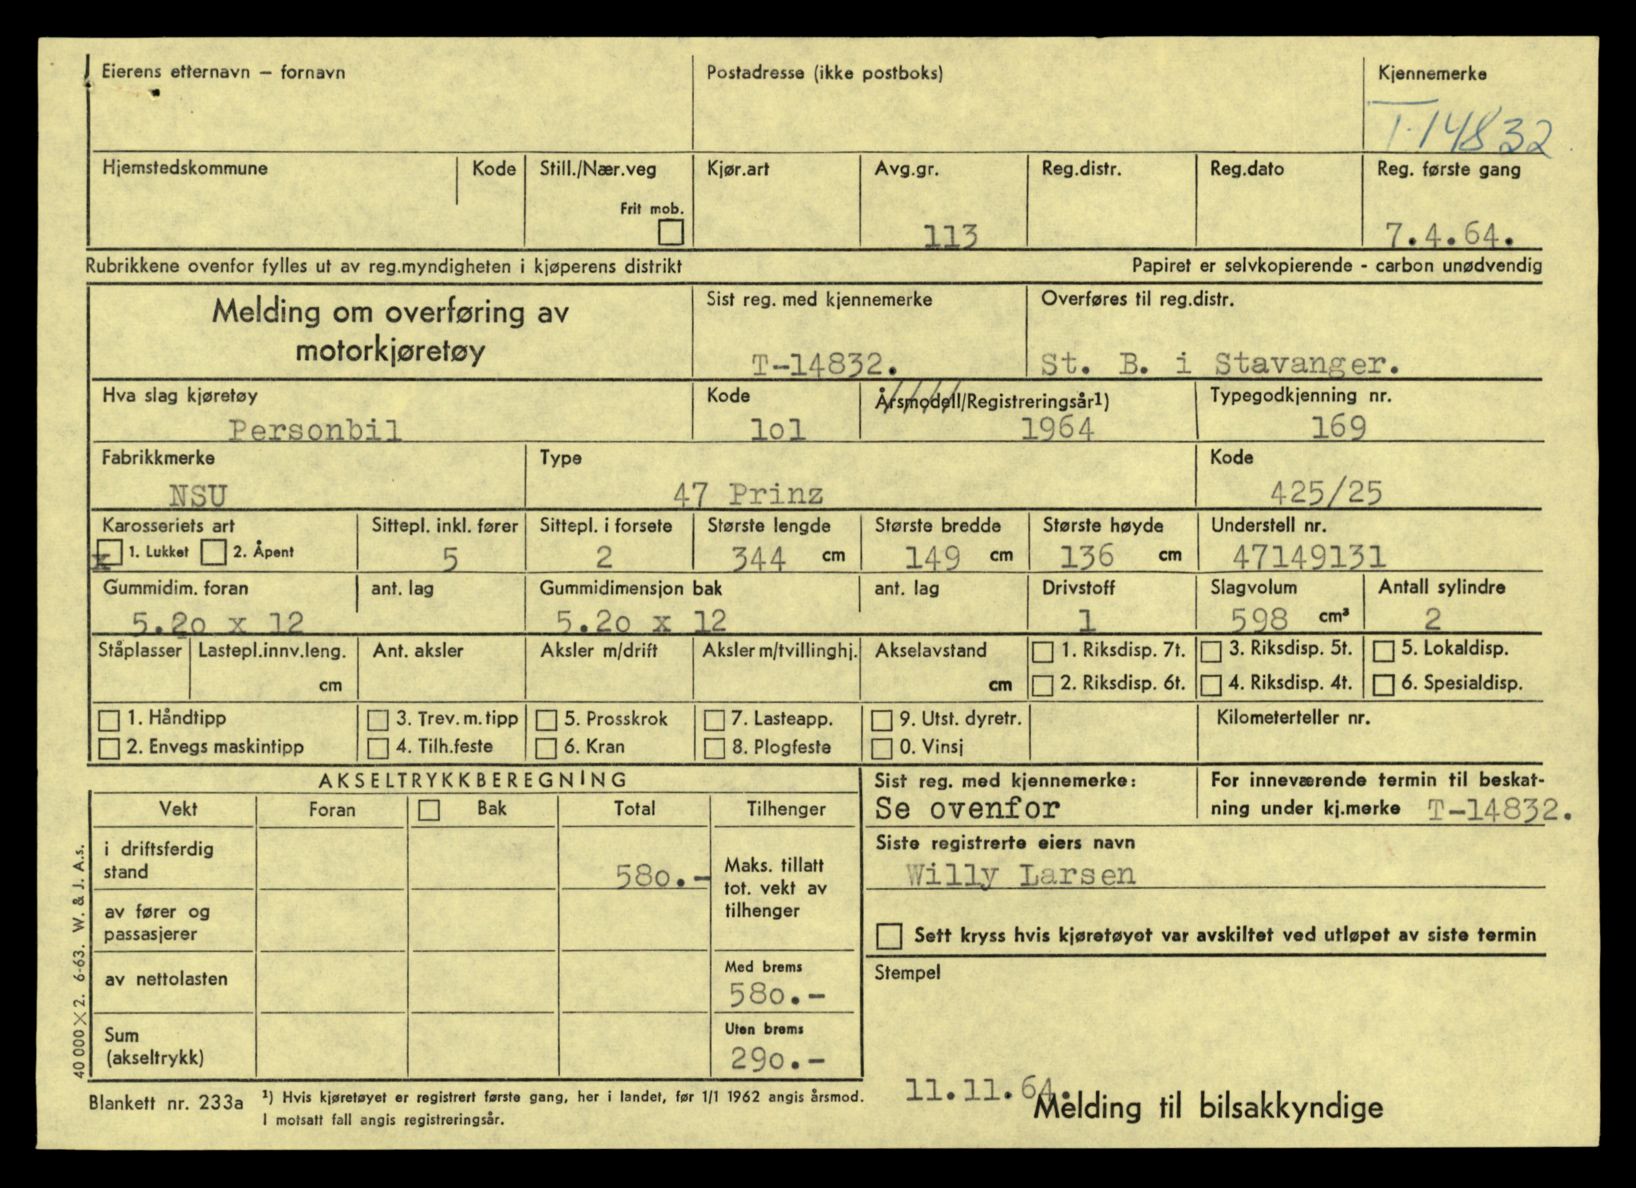 Eierens etternavn – fornavn
Postadresse (ikke postboks)
Kjennemerke
T-14832
Hjemstedskommune
Kode
Still./Nær.veg
Frit mob.
Kjør.art
Avg.gr.
113
Reg.distr.
Reg.dato
Reg. første gang
7.4.64.
Rubrikkene ovenfor fylles ut av reg.myndigheten i kjøperens distrikt
Papiret er selvkopierende - carbon unødvendig
Melding om overføring av
motorkjøretøy
Sist reg. med kjennemerke
T-14832.
Overføres til reg.distr.
St. B. i Stavanger.
Hva slag kjøretøy
Personbil
Kode
lol
Årsmodell/Registreringsår1)
1964
Typegodkjenning nr.
169
Fabrikkmerke
NSU
Type
47 Prinz
Kode
425/25
Karosseriets art
x 1. Lukket 2. Åpent
Sittepl. inkl. fører
5
Sittepl. i forsete
2
Største lengde
344 cm
Største bredde
149 cm
Største høyde
136 cm
Understell nr.
47149131
Gummidim. foran
5.2o x 12
ant. lag
Gummidimensjon bak
5.2o x 12
ant. lag
Drivstoff
1
Slagvolum
598 cm³
Antall sylindre
2
Ståplasser
Lastepl.innv.leng.
cm
Ant. aksler
Aksler m/drift
Aksler m/tvillinghj.
Akselavstand
cm
1. Riksdisp. 7t.
2. Riksdisp. 6t.
3. Riksdisp. 5t.
4. Riksdisp. 4t.
5. Lokaldisp.
6. Spesialdisp.
1. Håndtipp
2. Envegs maskintipp
3. Trev. m. tipp
4. Tilh.feste
5. Prosskrok
6. Kran
7. Lasteapp.
8. Plogfeste
9. Utst. dyretr.
0. Vinsj
Kilometerteller nr.
AKSELTRYKKBEREGNING
Vekt
Foran
Bak
Total
Tilhenger
i driftsferdig
stand
58o.-
Maks. tillatt
tot. vekt av
tilhenger
av fører og
passasjerer
av nettolasten
Med brems
58o.-
Sum
(akseltrykk)
Uten brems
29o.-
Sist reg. med kjennemerke:
Se ovenfor
For inneværende termin til beskat-
ning under kj.merke T-14832.
Siste registrerte eiers navn
Willy Larsen
Sett kryss hvis kjøretøyet var avskiltet ved utløpet av siste termin
Stempel
11.11.64.
Melding til bilsakkyndige
40 000 × 2. 6-63. W. & J. A.s.
Blankett nr. 233a
1) Hvis kjøretøyet er registrert første gang, her i landet, før 1/1 1962 angis årsmod.
I motsatt fall angis registreringsår.